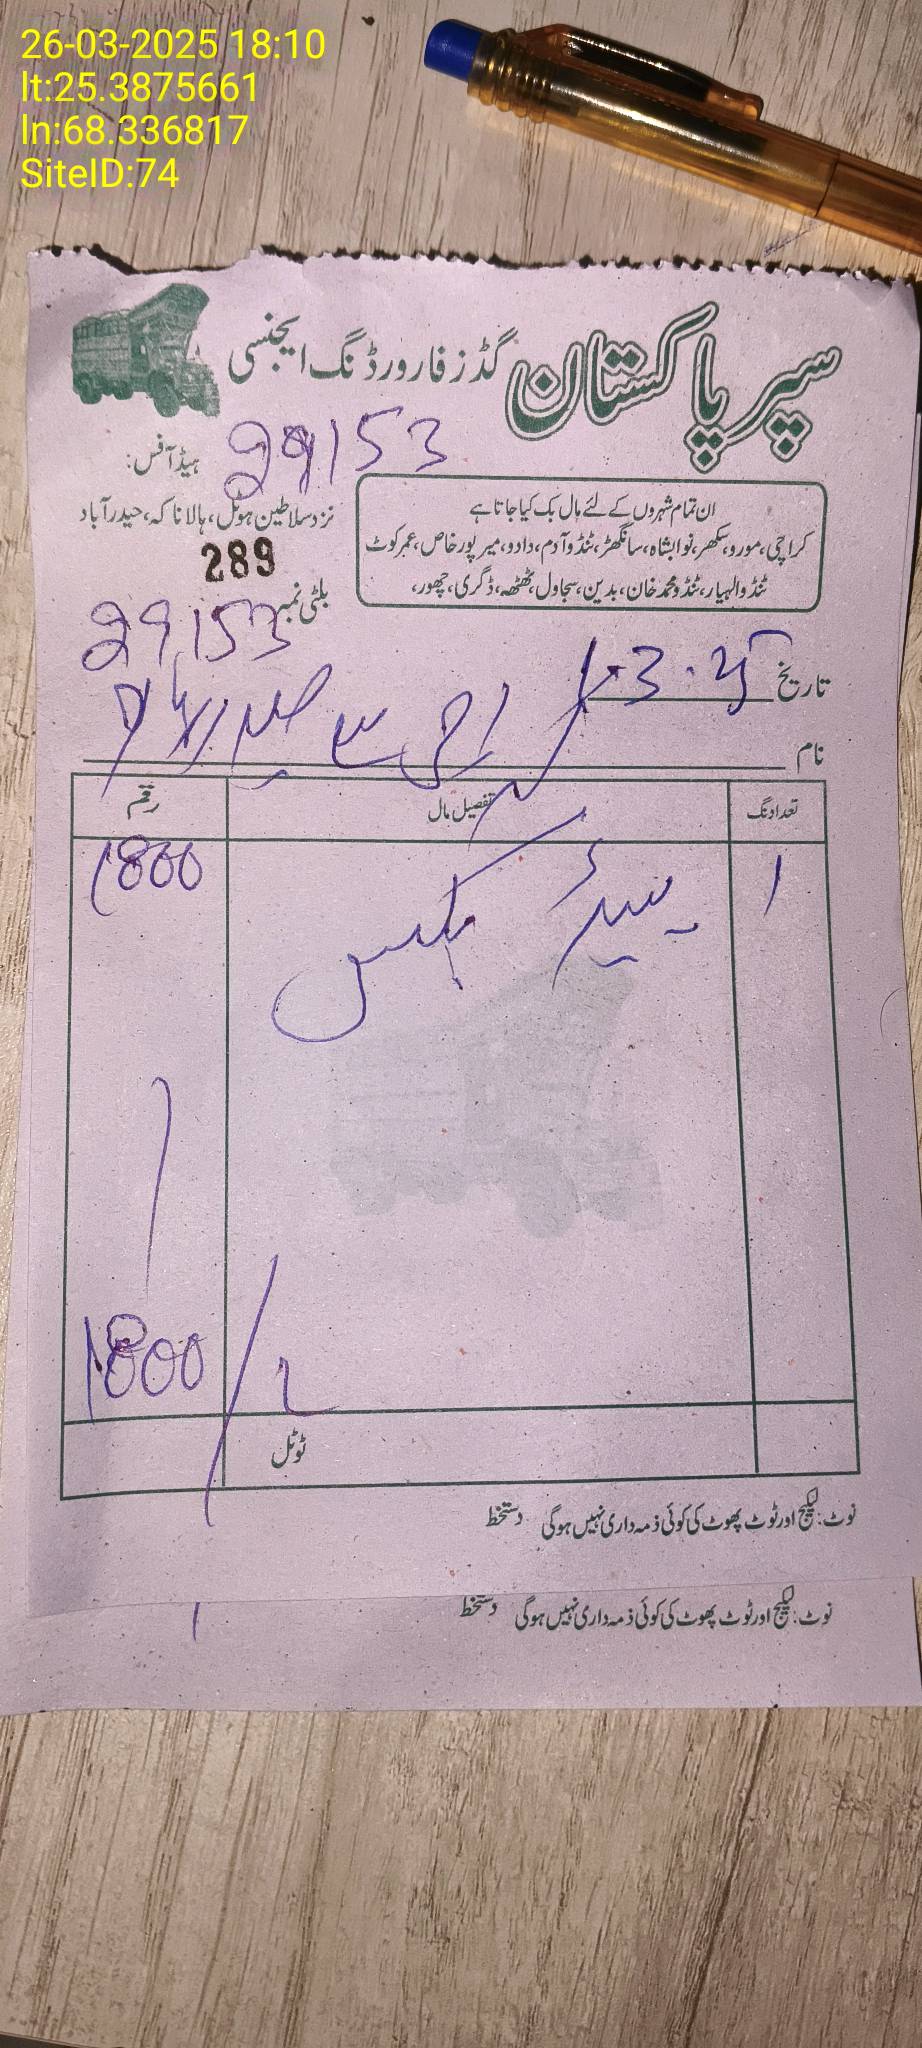 26-03-2025 18:10
lt:25.3875661
ln:68.336817
SiteID:74
سپر پاکستان گڈز فارورڈنگ ایجنسی
29153
ہیڈ آفس:
نزد سلاطین ہوٹل، ہالا ناکہ، حیدرآباد
ان تمام شہروں کے لئے مال بک کیا جاتا ہے
کراچی، مورو، سکھر، نوابشاہ، سانگھڑ، ٹنڈوآدم، دادو، میرپورخاص، عمرکوٹ
ٹنڈوالہیار، ٹنڈومحمدخان، بدین، سجاول، ٹھٹھہ، ڈگری، چھور،
289
بلٹی نمبر 29153
تاریخ 3.25
نام
تعداد نگ تفصیل مال رقم
1 بکس 1800
1800
ٹوٹل
نوٹ: لیکیج اور ٹوٹ پھوٹ کی کوئی ذمہ داری نہیں ہوگی دستخط
نوٹ: لیکیج اور ٹوٹ پھوٹ کی کوئی ذمہ داری نہیں ہوگی دستخط